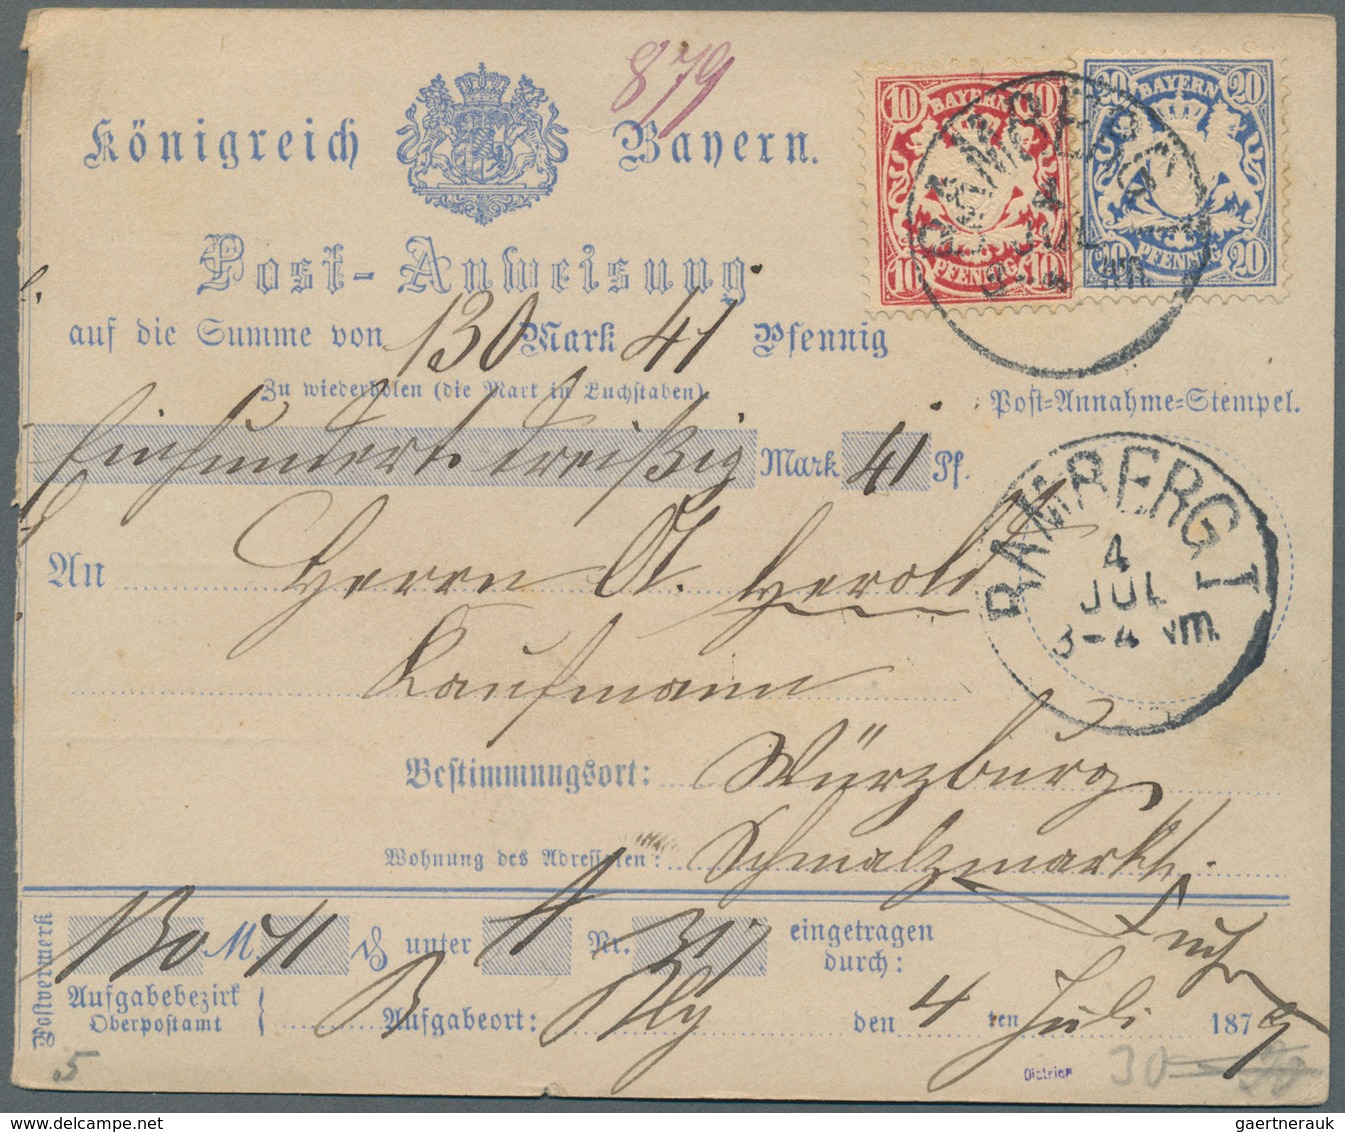 879
Königreich Bayern.
10 BAYERN 10
10 PFENNIG 10
20 BAYERN 20
20 PFENNIG 20
BAMBERG I
4
JUL
3-4 Nm.
Post-Anweisung
auf die Summe von 130 Mark 41 Pfennig
Zu wiederholen (die Mark in Buchstaben)
Post=Annahme=Stempel.
Einhundert dreißig Mark 41 Pf.
BAMBERG I
4
JUL
3-4 Nm.
An Herrn A. Herold
Kaufmann
Bestimmungsort: Würzburg
Wohnung des Adressaten: Schmalzmarkt.
Postvermerk
130 M. 41 ₰ unter A Nr. 317 eingetragen durch:
Aufgabebezirk
Oberpostamt
B Aufgabeort: Bbg den 4 ten Juli 1879
5
Dietrich
30